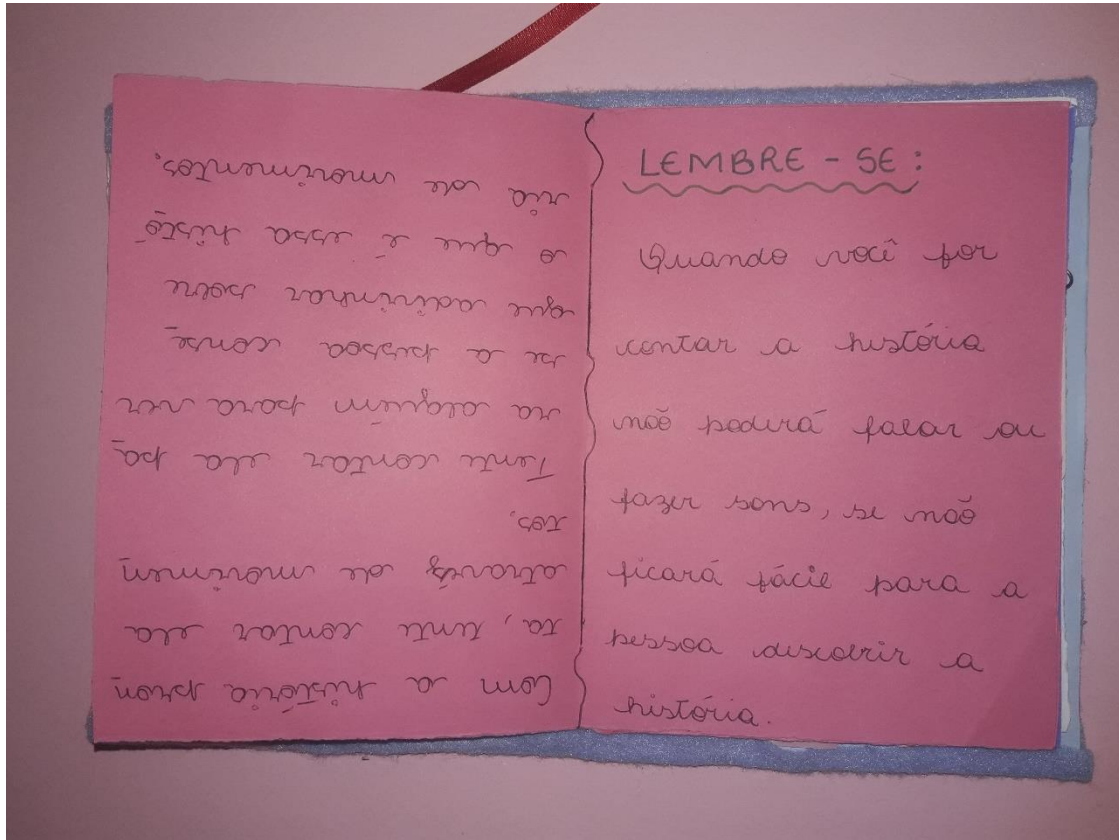 Com a história pron
ta, tente contar ela
através de movimen
tos.
Tente contar ela pa
ra alguém para ver
se a pessoa conse
gue adivinhar sobre
o que é essa histó
ria de movimentos.
LEMBRE - SE:
Quando você for
contar a história
não poderá falar ou
fazer sons, se não
ficará fácil para a
pessoa descobrir a
história.